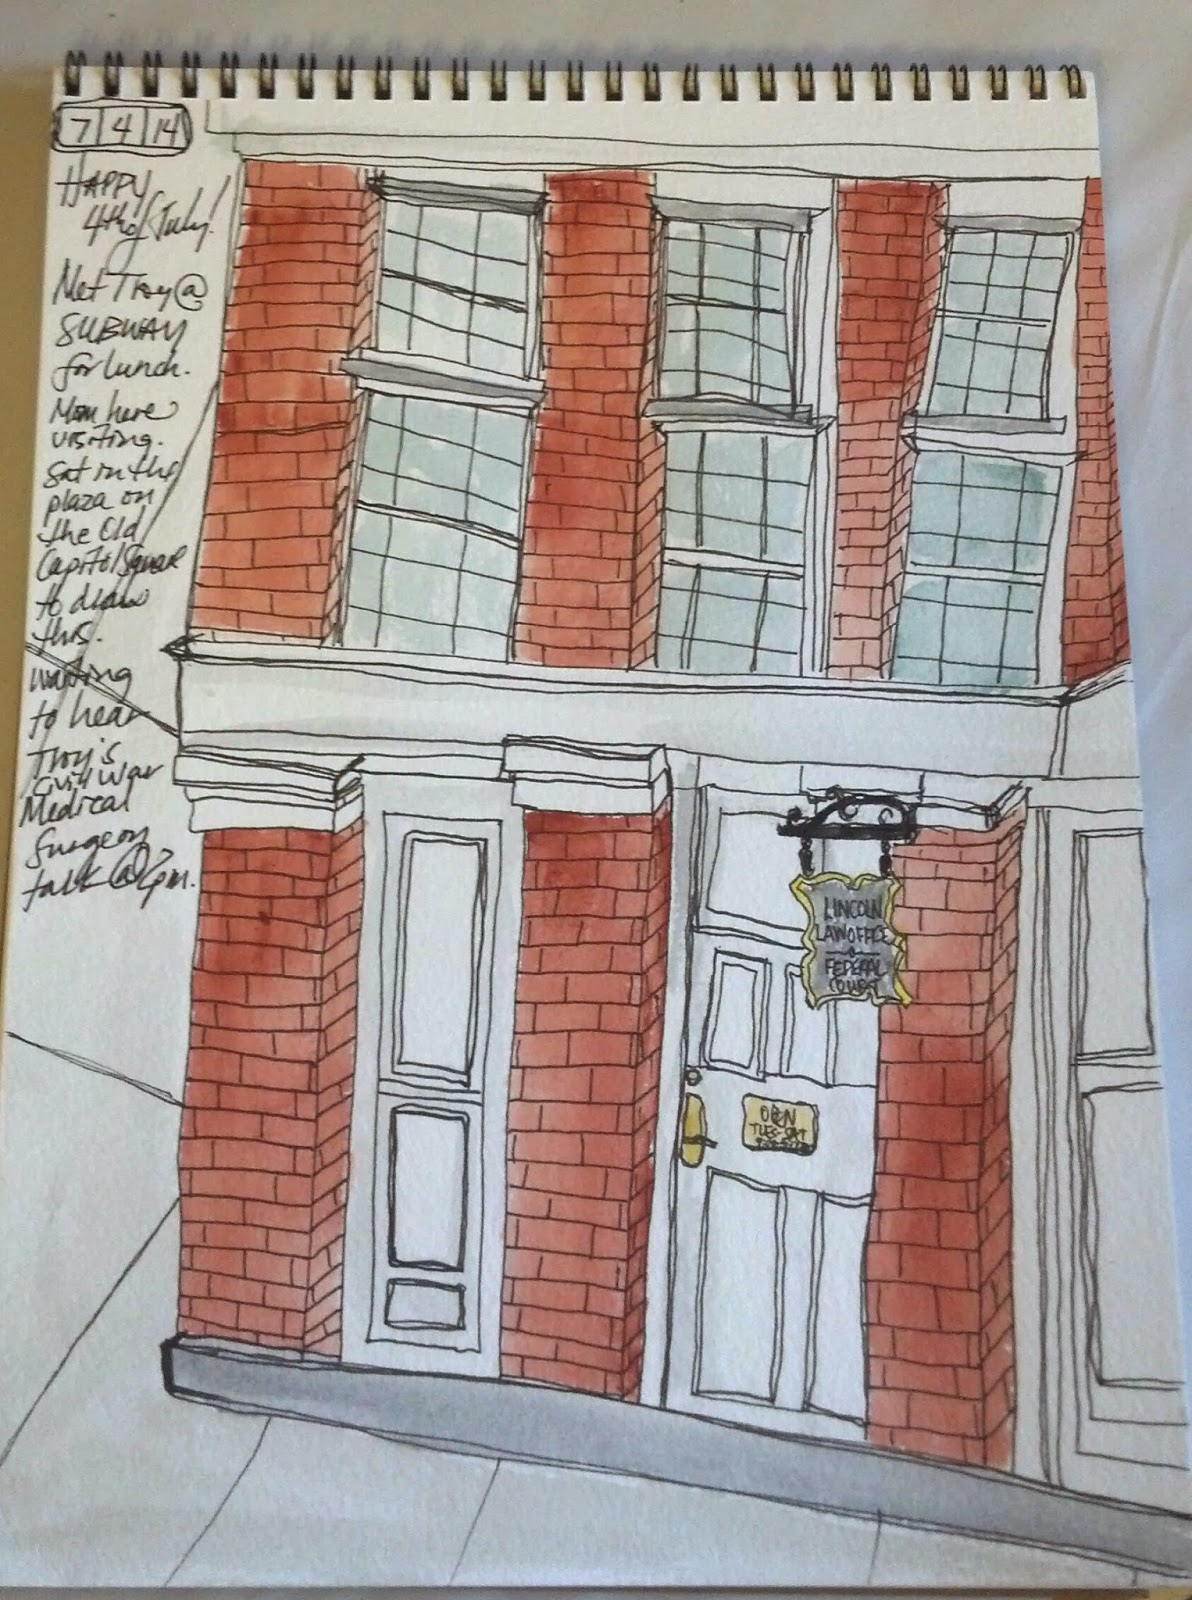 7 4 14
HAPPY
4th of July!
Met Troy @
SUBWAY
for lunch.
Mom here
visiting.
Sat in the
plaza on
the Old
Capitol Square
to draw
this.
waiting
to hear
Troy's
Civil War
Medical
Surgeon
talk @ 2pm.
LINCOLN
LAW OFFICE
FEDERAL
COURT
OPEN
TUES-SAT